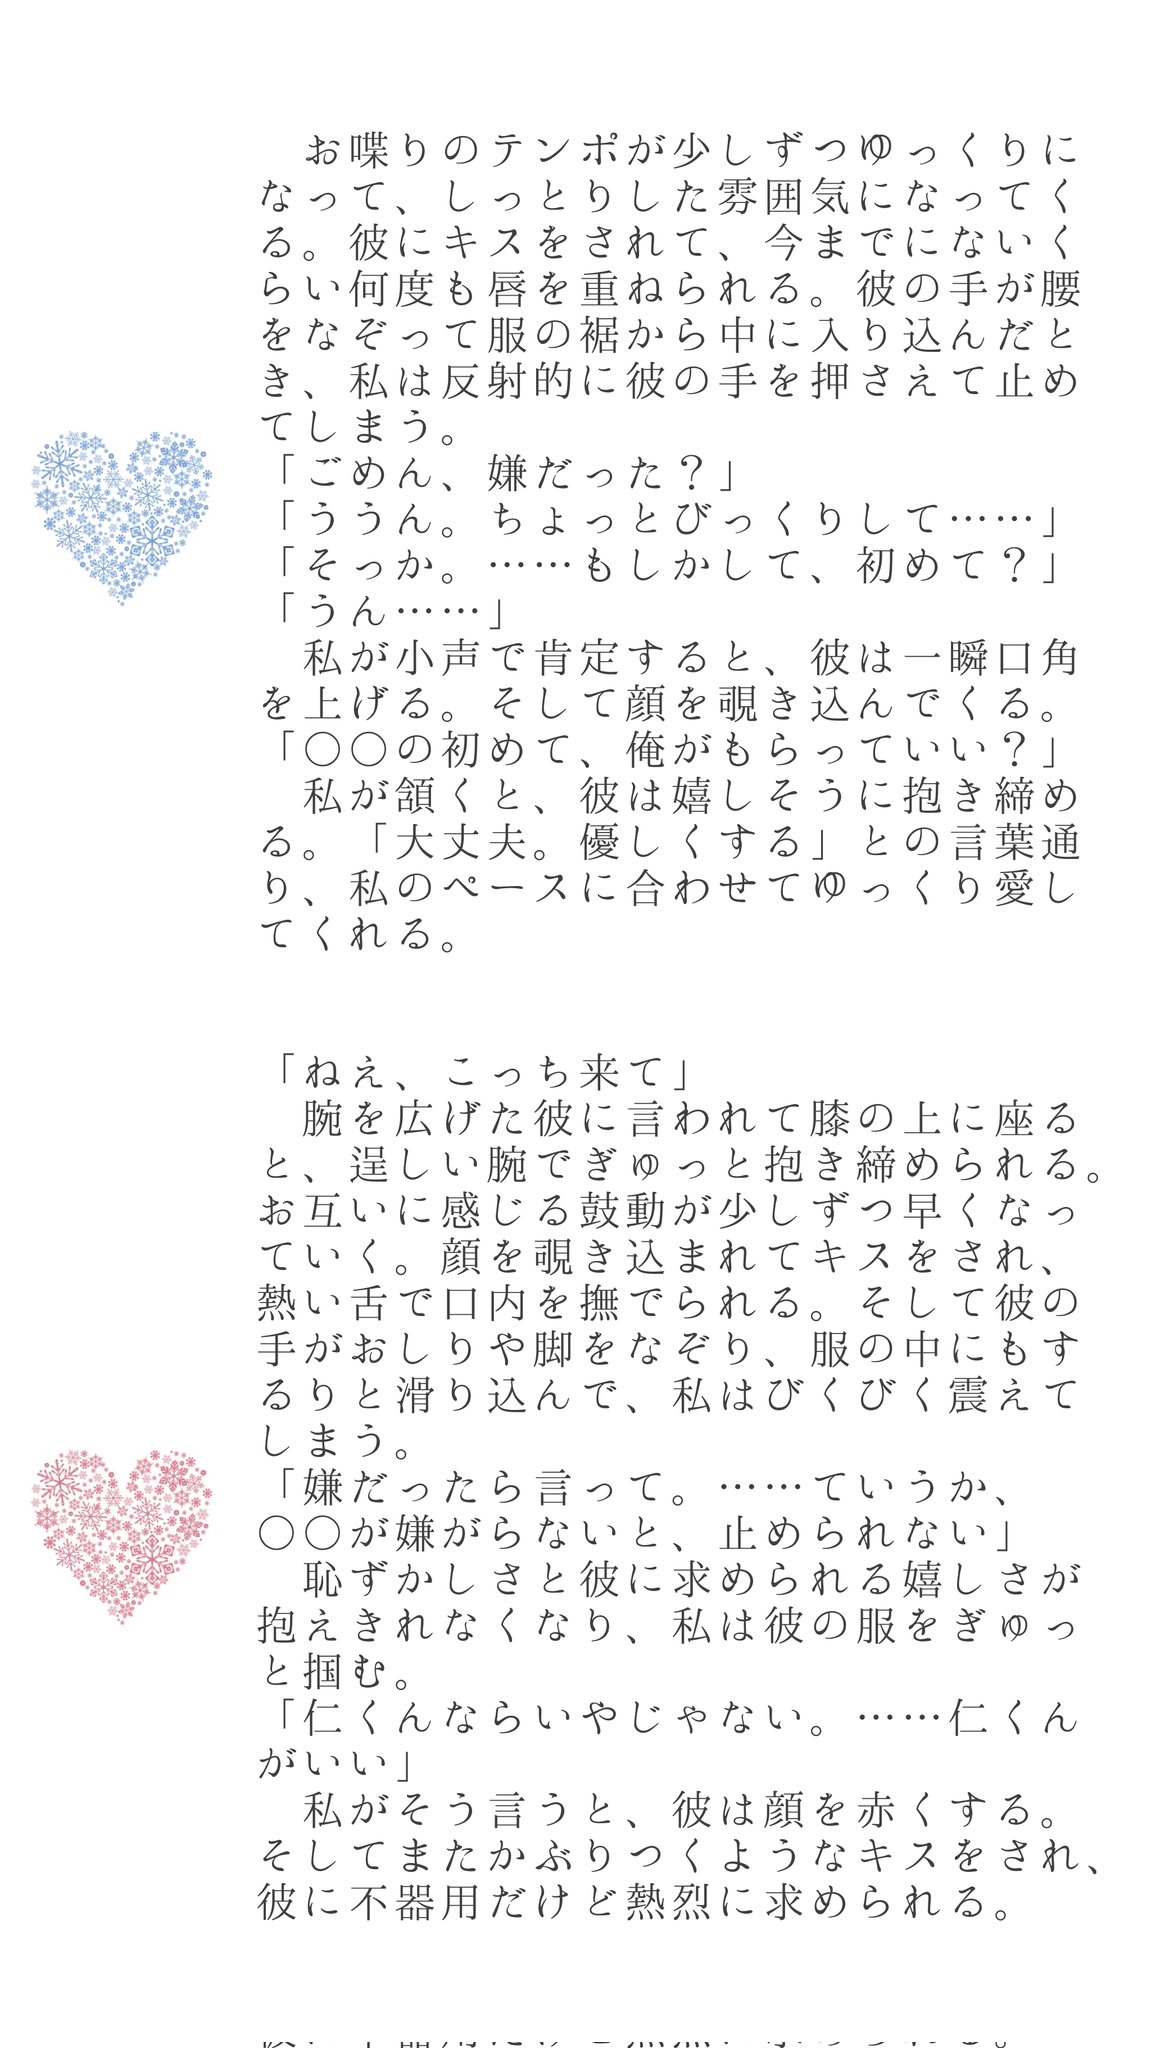 お喋りのテンポが少しずつゆっくりに
なって、しっとりした雰囲気になってく
る。彼にキスをされて、今までにないく
らい何度も唇を重ねられる。彼の手が腰
をなぞって服の裾から中に入り込んだと
き、私は反射的に彼の手を押さえて止め
てしまう。
「ごめん、嫌だった？」
「ううん。ちょっとびっくりして……」
「そっか。……もしかして、初めて？」
「うん……」
　私が小声で肯定すると、彼は一瞬口角
を上げる。そして顔を覗き込んでくる。
「〇〇の初めて、俺がもらっていい？」
　私が頷くと、彼は嬉しそうに抱き締め
る。「大丈夫。優しくする」との言葉通
り、私のペースに合わせてゆっくり愛し
てくれる。
「ねえ、こっち来て」
　腕を広げた彼に言われて膝の上に座る
と、逞しい腕でぎゅっと抱き締められる。
お互いに感じる鼓動が少しずつ早くなっ
ていく。顔を覗き込まれてキスをされ、
熱い舌で口内を撫でられる。そして彼の
手がおしりや脚をなぞり、服の中にもす
るりと滑り込んで、私はびくびく震えて
しまう。
「嫌だったら言って。……ていうか、
〇〇が嫌がらないと、止められない」
　恥ずかしさと彼に求められる嬉しさが
抱えきれなくなり、私は彼の服をぎゅっ
と掴む。
「仁くんならいやじゃない。……仁くん
がいい」
　私がそう言うと、彼は顔を赤くする。
そしてまたかぶりつくようなキスをされ、
彼に不器用だけど熱烈に求められる。